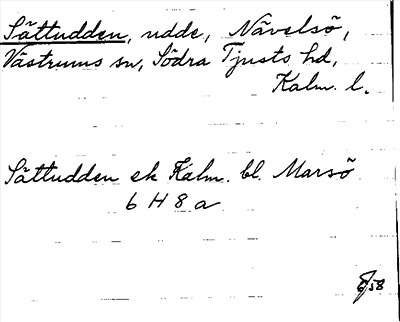 Sättudden, udde, Nävelsö,
Västrums sn, Södra Tjusts hd,
Kalm. l.
Sättudden ek Kalm. bl. Marsö
6 H 8 a
6/58